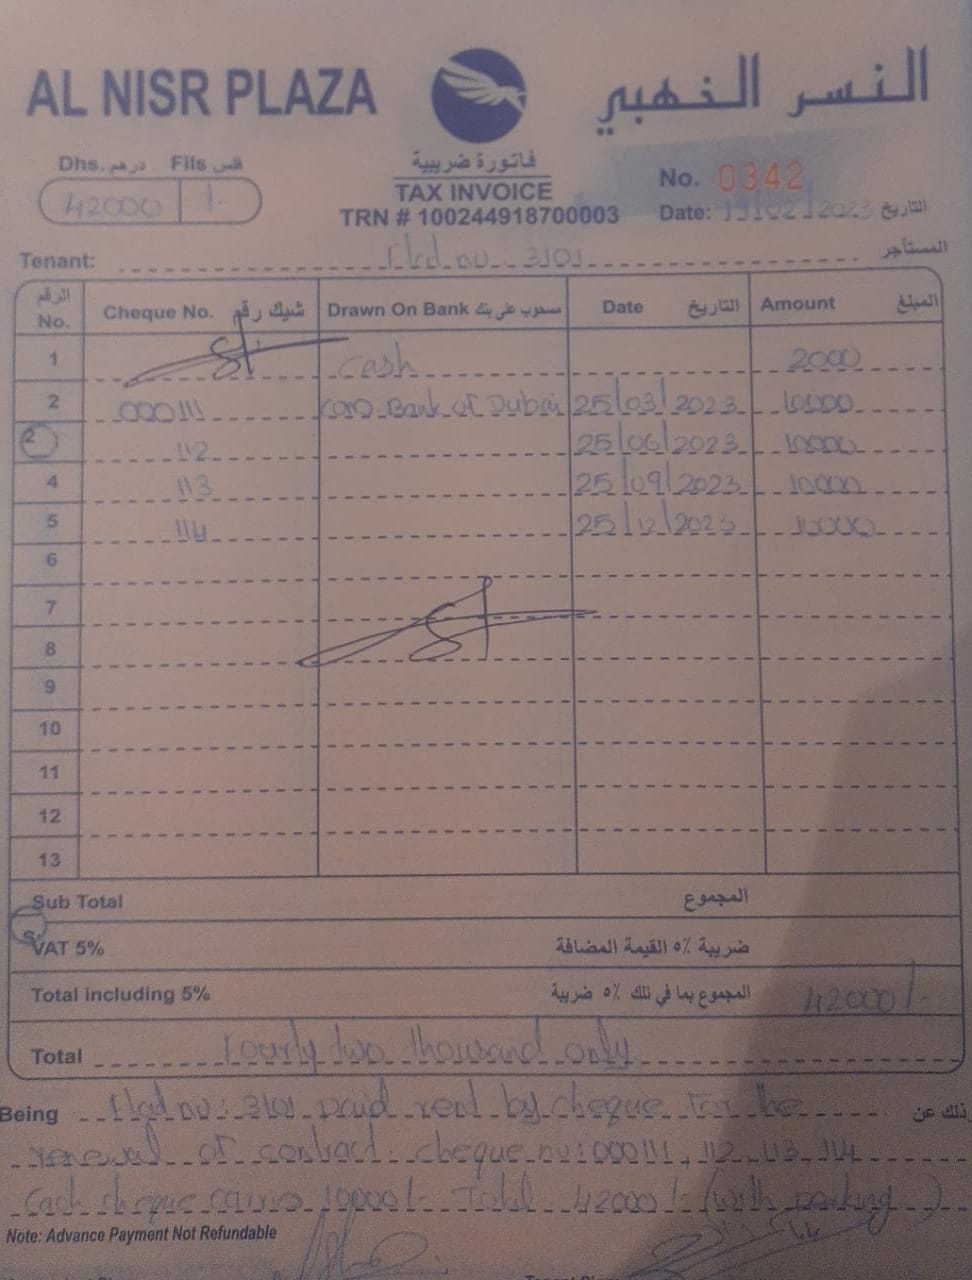 AL NISR PLAZA
النسر الذهبي
Dhs. درهم Fils فلس
42000 /-
فاتورة ضريبية
TAX INVOICE
TRN # 100244918700003
No. 0342
Date: 19/02/2023 التاريخ
Tenant: Flat no. 3101 المستأجر
الرقم No. Cheque No. شيك رقم Drawn On Bank مسحوب على بنك Date التاريخ Amount المبلغ
1 Cash 2000
2 000111 Bank of Dubai 25/03/2023 10000
2 112 25/06/2023 10000
4 113 25/09/2023 10000
5 114 25/12/2023 10000
6
7
8
9
10
11
12
13
Sub Total المجموع
VAT 5% ضريبة ٥٪ القيمة المضافة
Total including 5% المجموع بما في ذلك ٥٪ ضريبة 42000/-
Total Fourty two thousand only
Being Flat no: 3101 paid rent by cheque for the وذلك عن
renewal of contract. cheque no: 000111, 112, 113, 114
Each cheque 10000/- Total 42000/- (with parking)
Note: Advance Payment Not Refundable